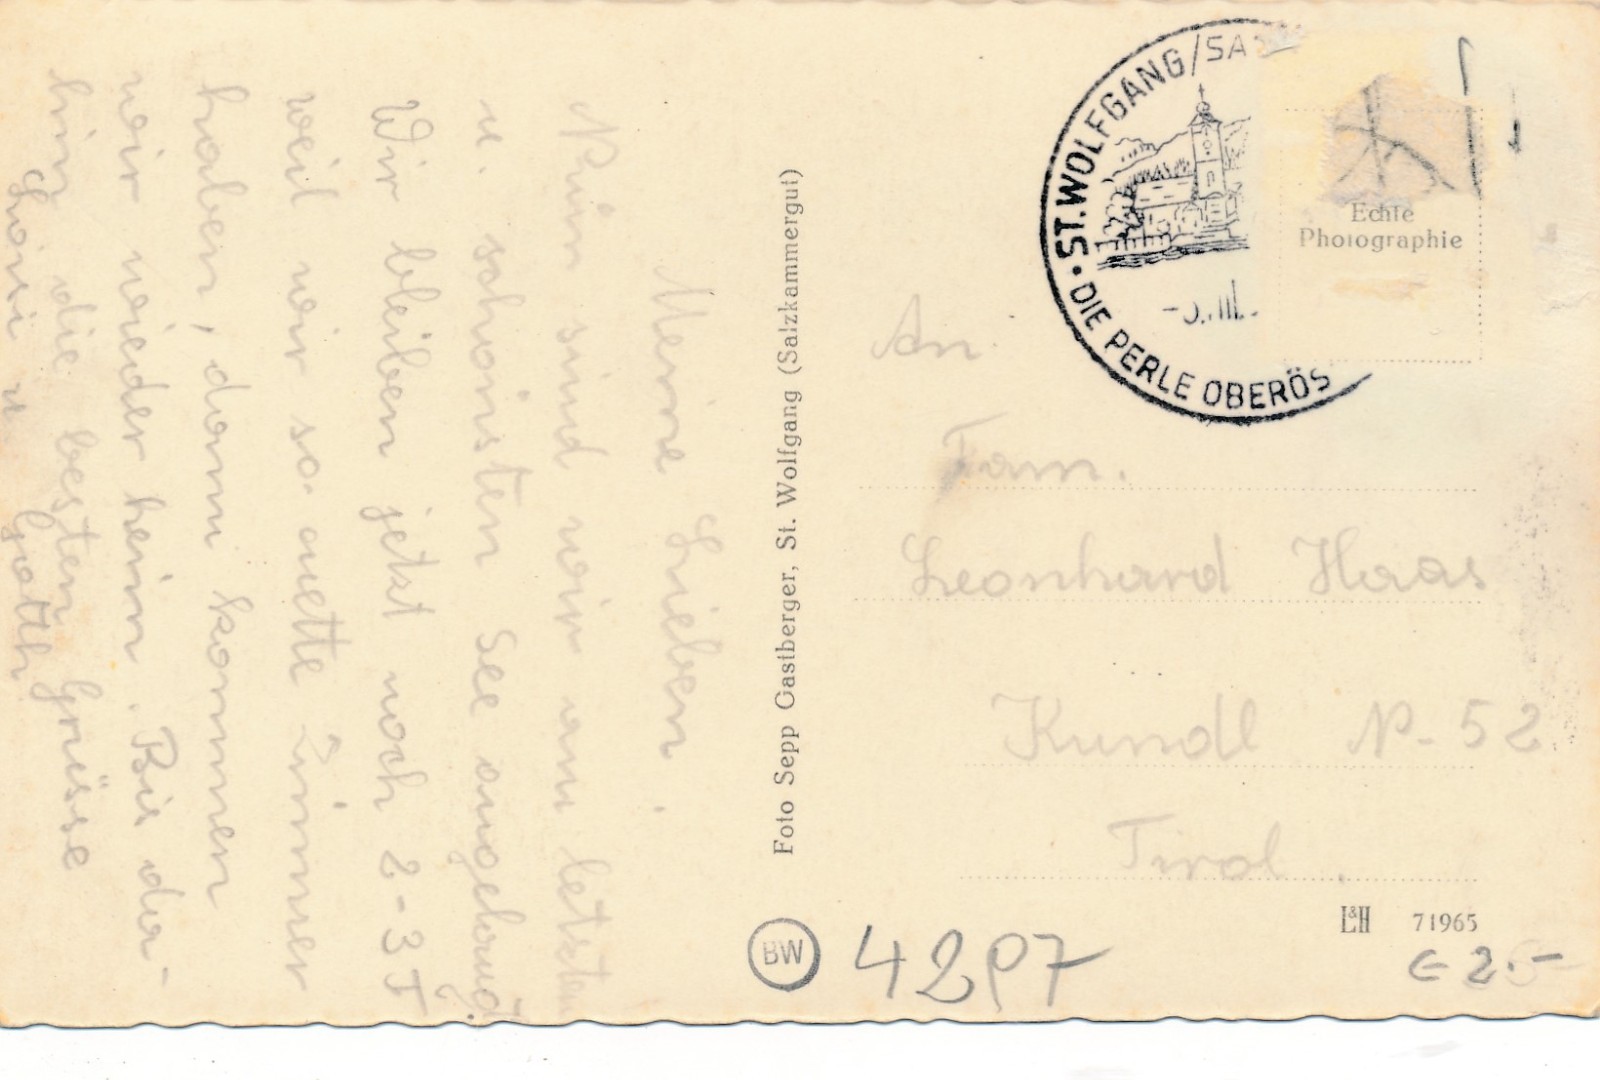 Meine Lieben.
Nun sind wir am letzten
u. schönsten See angelangt.
Wir bleiben jetzt noch 2-3 T
weil wir so nette Zimmer
haben, dann kommen
wir wieder heim. Bis da-
hin die besten Grüsse
u
Foto Sepp Gastberger, St. Wolfgang (Salzkammergut)
ST. WOLFGANG/SA
DIE PERLE OBERÖS
Echte
Photographie
An
Fam.
Leonhard Haas
Kundl N-52
Tirol.
L&H 71965
BW
€ 2.-